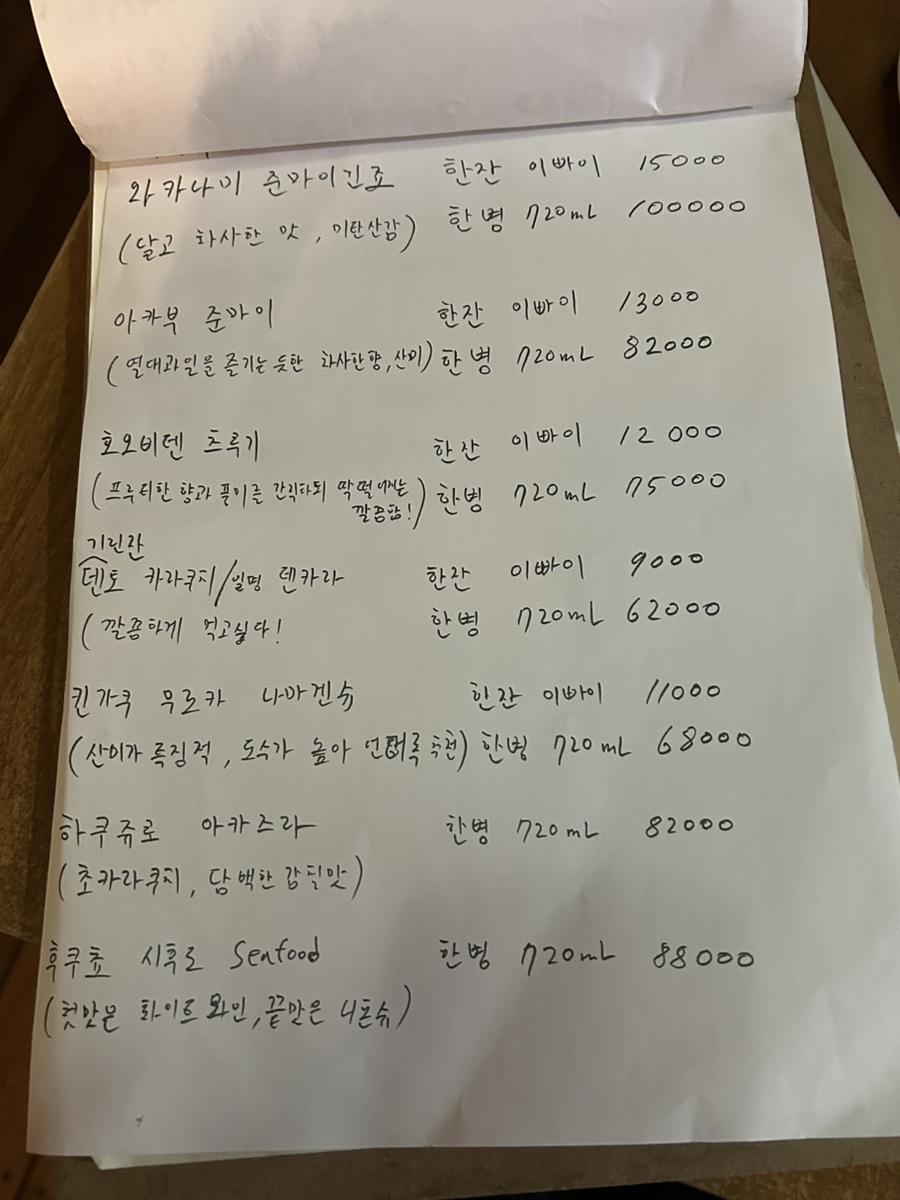 와카나미 준마이긴죠 한잔 이빠이 15000
(달고 화사한 맛, 미탄산감) 한병 720mL 100000
아카부 준마이 한잔 이빠이 13000
(열대과일을 즐기는 듯한 화사한향, 산미) 한병 720mL 82000
호오비덴 츠루기 한잔 이빠이 12000
(프루티한 향과 풍미를 간직하되 딱 떨어지는 한병 720mL 75000
깔끔함!)
기린잔
덴토 카라쿠치/일명 텐카라 한잔 이빠이 9000
(깔끔하게 먹고싶다! 한병 720mL 62000
킨가쿠 무로카 나마겐슈 한잔 이빠이 11000
(산미가 특징적, 도수가 높아 추천) 한병 720mL 68000
하쿠쥬로 아카즈라 한병 720mL 82000
(초카라쿠치, 담백한 감칠맛)
후쿠쵸 시후도 Seafood 한병 720mL 88000
(첫맛은 화이트 와인, 끝맛은 니혼슈)